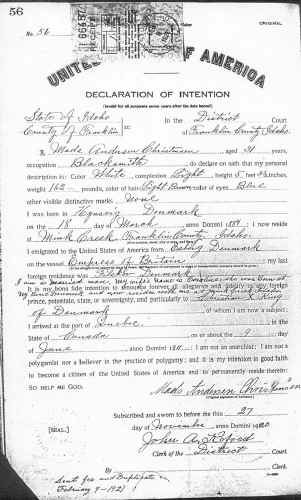 56
ORIGINAL
No. 56
UNITED OF AMERICA
DECLARATION OF INTENTION
(Invalid for all purposes seven years after the date hereof)
State of Idaho In the District Court
County of Franklin ss: of Franklin County, Idaho
I, Mads Andersen Christensen aged 31 years,
occupation Blacksmith, do declare on oath that my personal
description is: Color White, complexion Light, height 5 feet inches,
weight 162 pounds, color of hair Light Brown color of eyes Blue
other visible distinctive marks None
I was born in Denmark
on the 18 day of March anno Domini; I now
reside at Mink Creek Franklin County Idaho
I emigrated to the United States of America from Denmark
on the vessel Empress of Britain; my last
foreign residence was Denmark
I am a married man. My wife's name is she was born at
It is my bona fide intention to renounce forever all allegiance and fidelity to any foreign
prince, potentate, state, or sovereignty, and particularly to Christian X King
of Denmark, of whom I am now a subject;
I arrived at the port of Quebec, in the
State of Canada on or about the 9 day
of June anno Domini; I am not an anarchist; I am not a
polygamist nor a believer in the practice of polygamy; and it is my intention in good faith
to become a citizen of the United States of America and to permanently reside therein:
SO HELP ME GOD.
Mads Andersen Christensen
Subscribed and sworn to before me this 27
[SEAL.] day of November anno Domini 1920
John A.
Clerk of the District Court
Sent fee and Duplicate on
February 9-1921